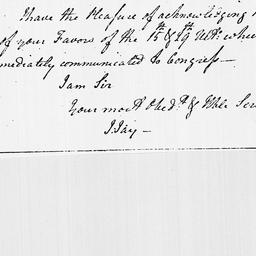 I have the Pleasure of acknowledging
of your Favors of the 15th & 29th Ulto: whi
mediately communicated to Congress—
I am Sir
Your most Obedt. & Hble Ser
J. Jay—